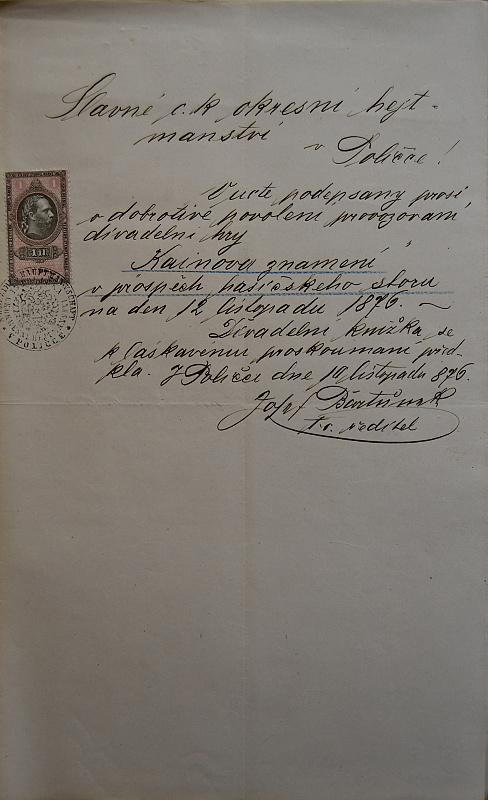 Slavné c. k. okresní hejt-
manství
v Poličce!
Vuctě podepsaný prosí
o dobrotivé povolení provozování
divadelní hry
"Kainovo znamení"
v prospěch hasičského sboru
na den 12 listopadu 1876. –
Divadelní knížka se
k laskavému proskoumání před-
kla. V Poličce dne 10 listopadu 876.
Josef
t. č. ředitel
1 1
1 FL